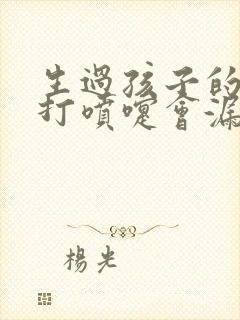 生過孩子的
打噴嚏會漏
楊光